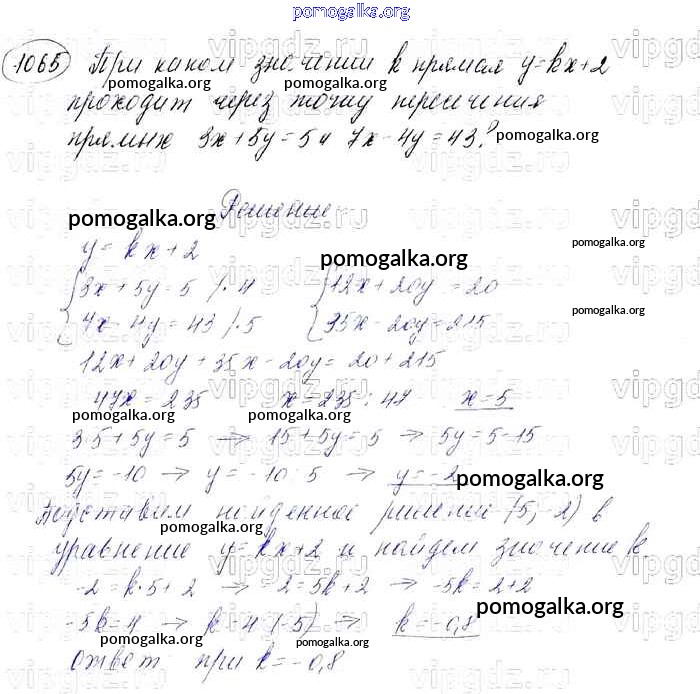 pomogalka.org
1065 При каком значении k прямая y=kx+2
pomogalka.org pomogalka.org
проходит через точку пересечения
прямых 3x+5y=5 и 7x-4y=43? pomogalka.org
Решение
pomogalka.org
y=kx+2
pomogalka.org
pomogalka.org
3x+5y=5 /·4 12x+20y=20
pomogalka.org
7x-4y=43 /·5 35x-20y=215
12x+20y+35x-20y=20+215
47x=235 x=235:47 x=5
pomogalka.org pomogalka.org
3·5+5y=5 → 15+5y=5 → 5y=5-15
5y=-10 → y=-10:5 → y=-2
pomogalka.org
Подставим найденное решение (5;-2) в
pomogalka.org
уравнение y=kx+2 и найдем значение k
-2=k·5+2 → -2=5k+2 → -5k=2+2
pomogalka.org
-5k=4 → k=4:(-5) → k=-0,8
pomogalka.org pomogalka.org
Ответ: при k=-0,8